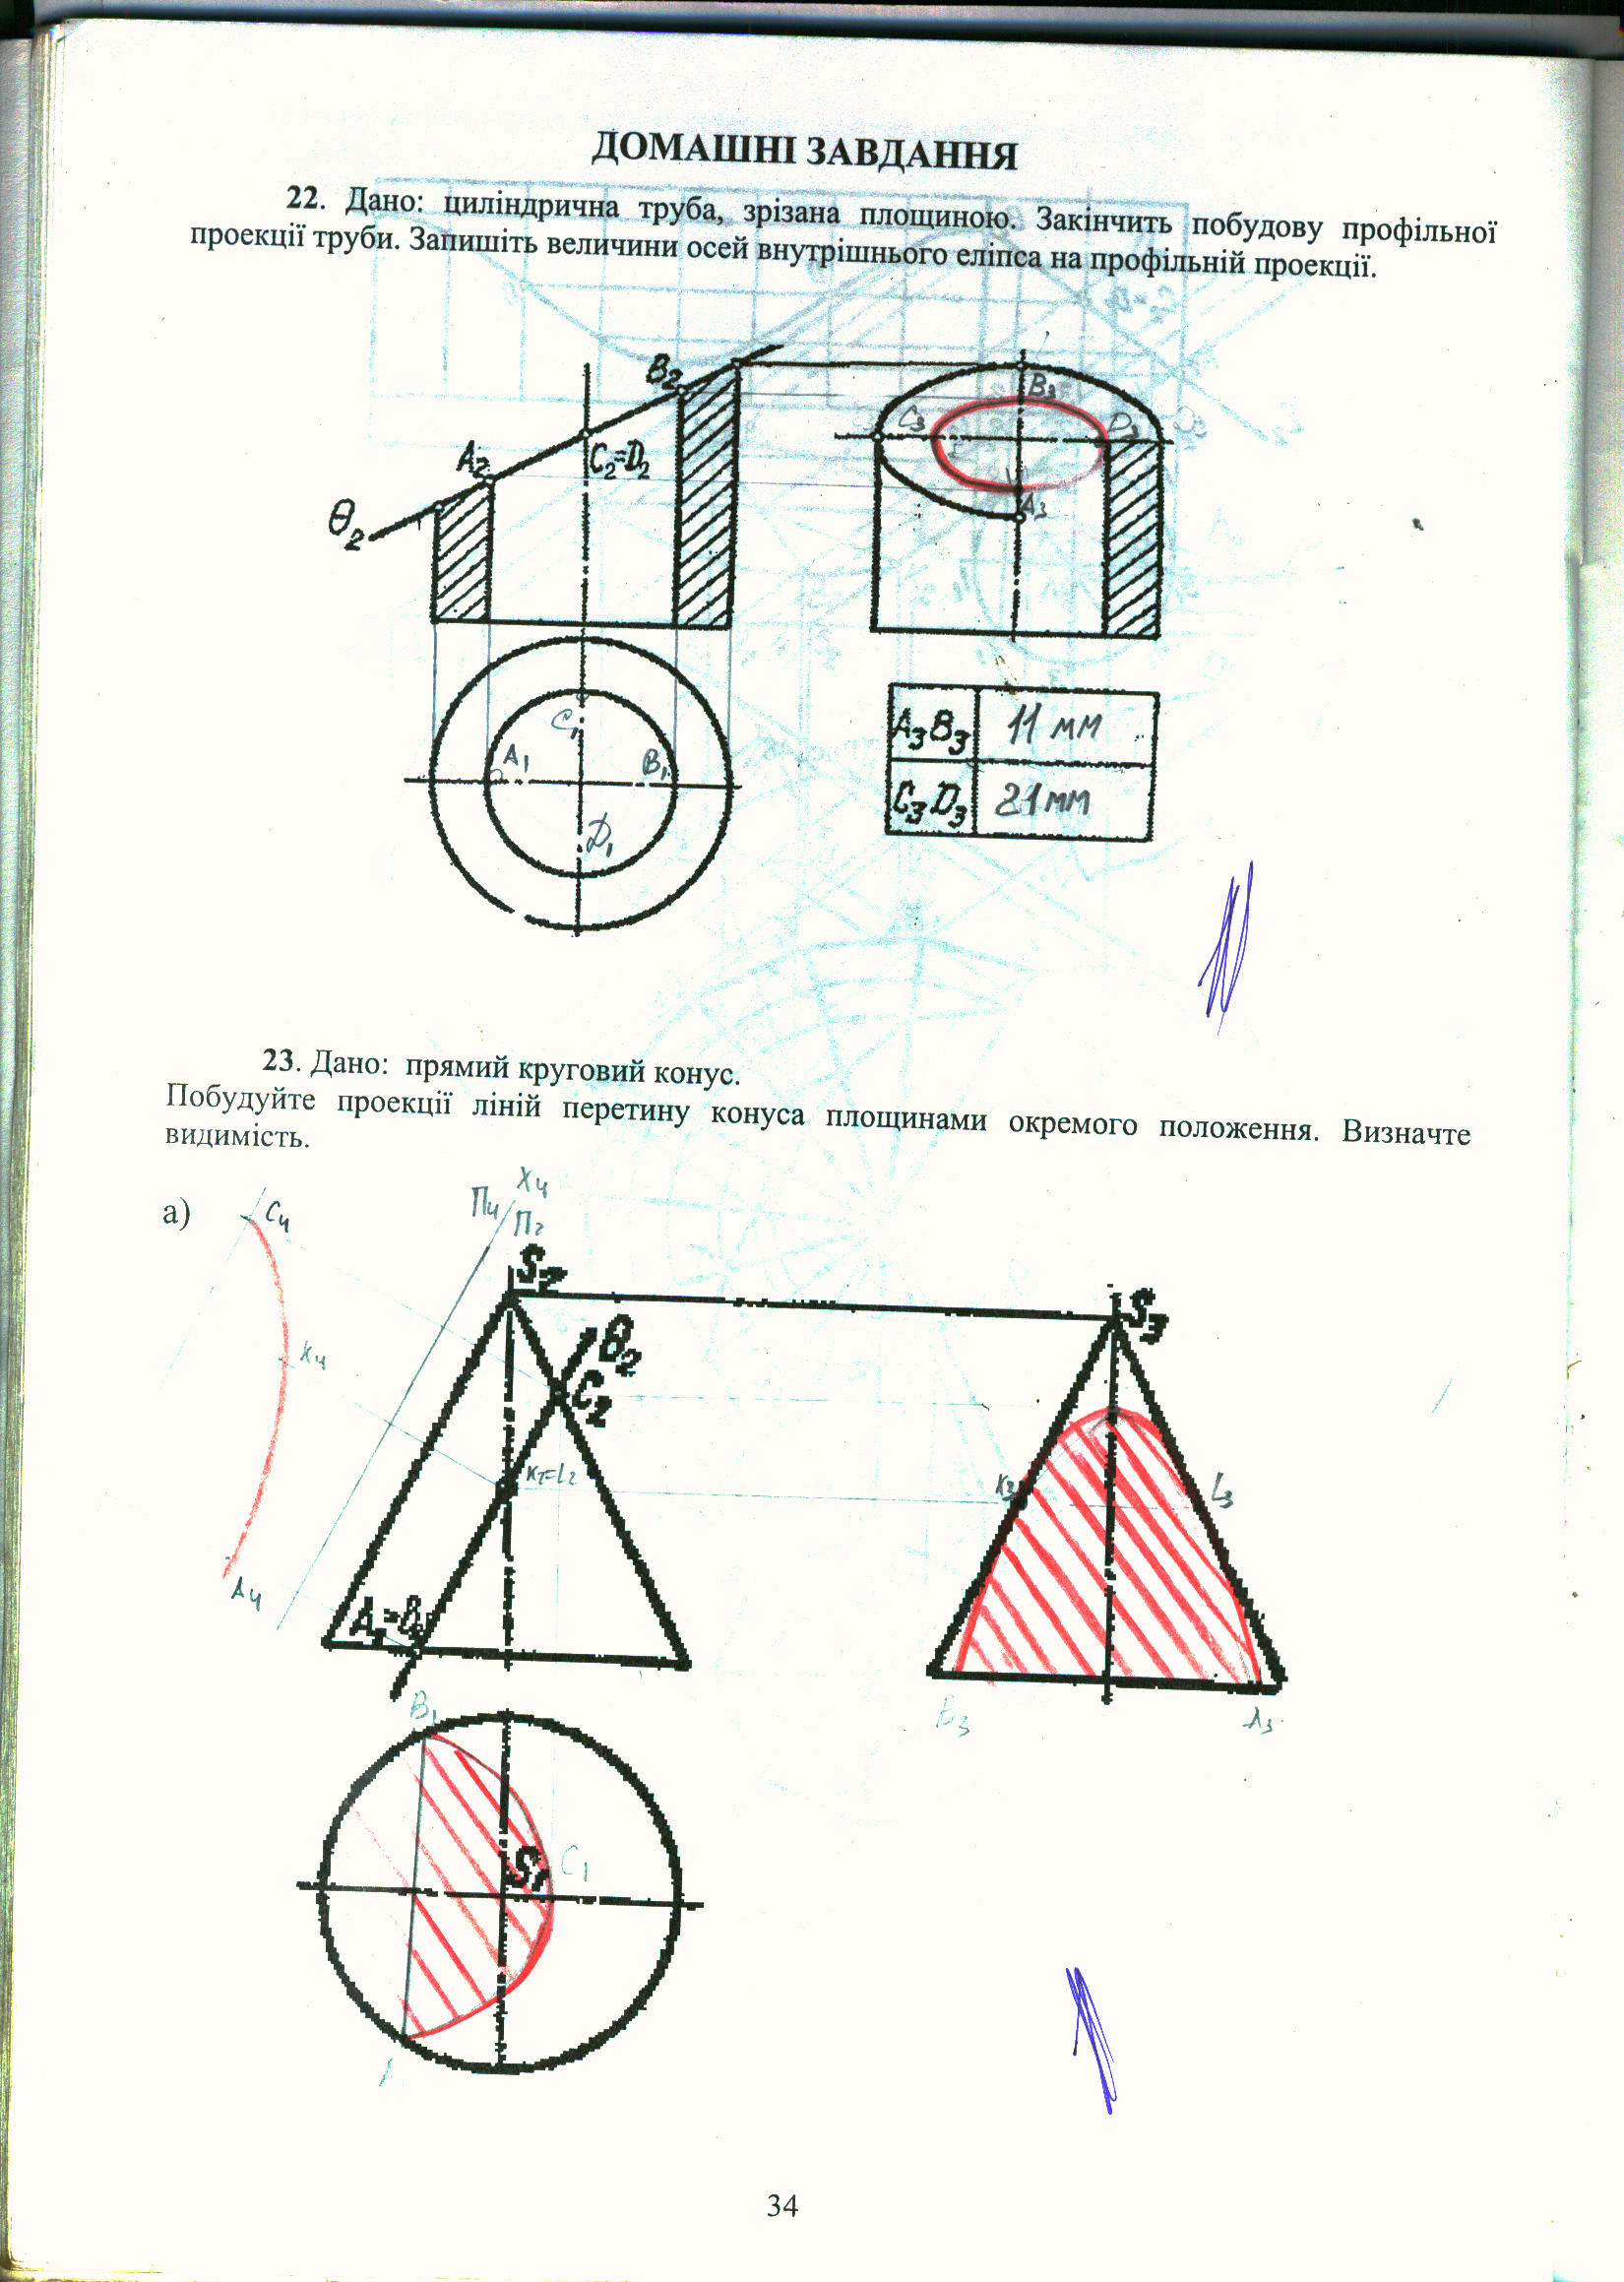 ДОМАШНІ ЗАВДАННЯ
22. Дано: циліндрична труба, зрізана площиною. Закінчить побудову профільної
проекції труби. Запишіть величини осей внутрішнього еліпса на профільній проекції.
B₂
A₂
C₂=D₂
θ₂
B₃
C₃
D₃
A₃
C₁
A₁
B₁
D₁
A₃B₃ 11 мм
C₃D₃ 21 мм
23. Дано: прямий круговий конус.
Побудуйте проекції ліній перетину конуса площинами окремого положення. Визначте
видимість.
а)
C₄
X₄
П₄
П₂
S₂
S₃
θ₂
C₂
K₄
K₂=L₂
K₃
L₃
A₄
B₁
B₃
A₃
S₁
C₁
A
34